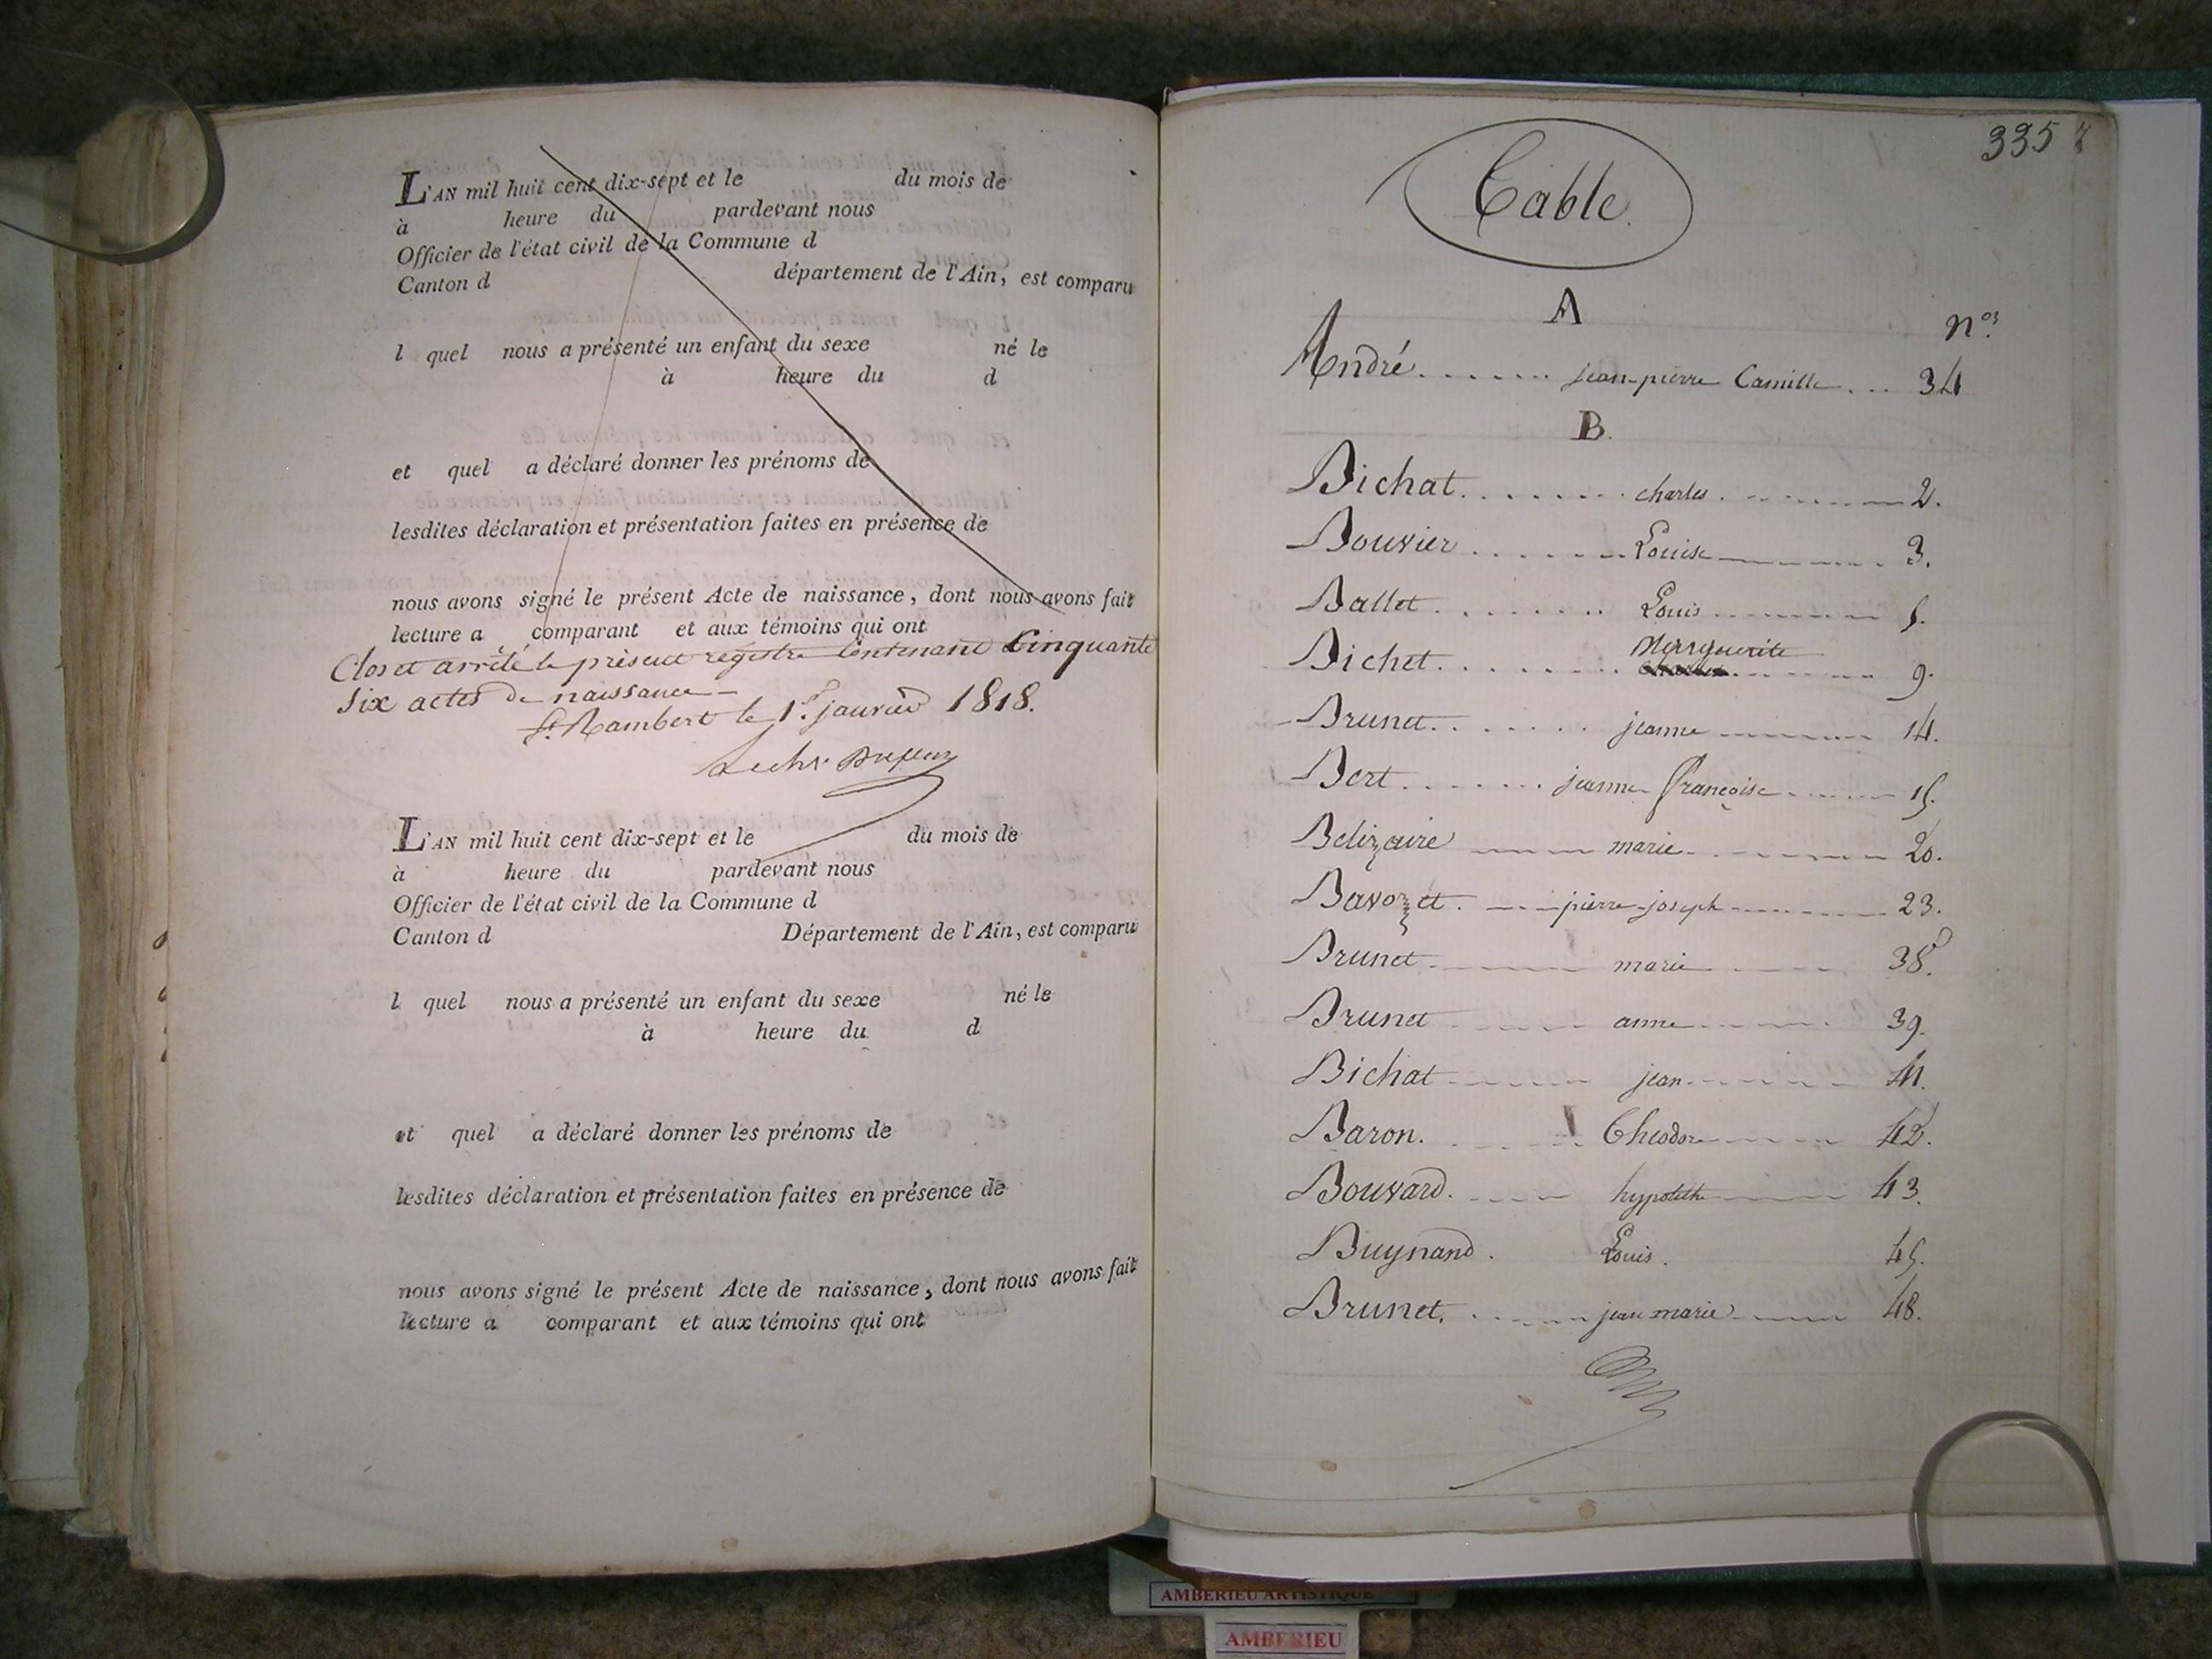 L'AN mil huit cent dix-sept et le du mois de
à heure du pardevant nous
Officier de l'état civil de la Commune d
Canton d département de l'Ain, est comparu
l quel nous a présenté un enfant du sexe né le
à heure du d
et quel a déclaré donner les prénoms de
lesdites déclaration et présentation faites en présence de
nous avons signé le présent Acte de naissance, dont nous avons fait
lecture a comparant et aux témoins qui ont
Clos et arrêté le présent registre Contenant Cinquante
Six actes de naissance
St. Rambert le 1er. janvier 1818.
L'AN mil huit cent dix-sept et le du mois de
à heure du pardevant nous
Officier de l'état civil de la Commune d
Canton d Département de l'Ain, est comparu
l quel nous a présenté un enfant du sexe né le
à heure du d
et quel a déclaré donner les prénoms de
lesdites déclaration et présentation faites en présence de
nous avons signé le présent Acte de naissance, dont nous avons fait
lecture a comparant et aux témoins qui ont
335
Table.
A
nos.
André jean-pierre Camille 34
B.
Bichat charles 2.
Bouvier Louise 3.
Ballet Louis 5.
Bichet Merguerite 9.
Brunet jeanne 14.
Bert jeanne françoise 15.
Belizaire marie 20.
Bavozet pierre-joseph 23.
Brunet marie 38.
Brunet anne 39.
Bichat jean 41.
Baron. Theodore 42.
Bouvard. hypolithe 43.
Buynand. Louis. 45.
Brunet. jean marie 48.
AMBERIEU ARTISTIQUE
AMBERIEU